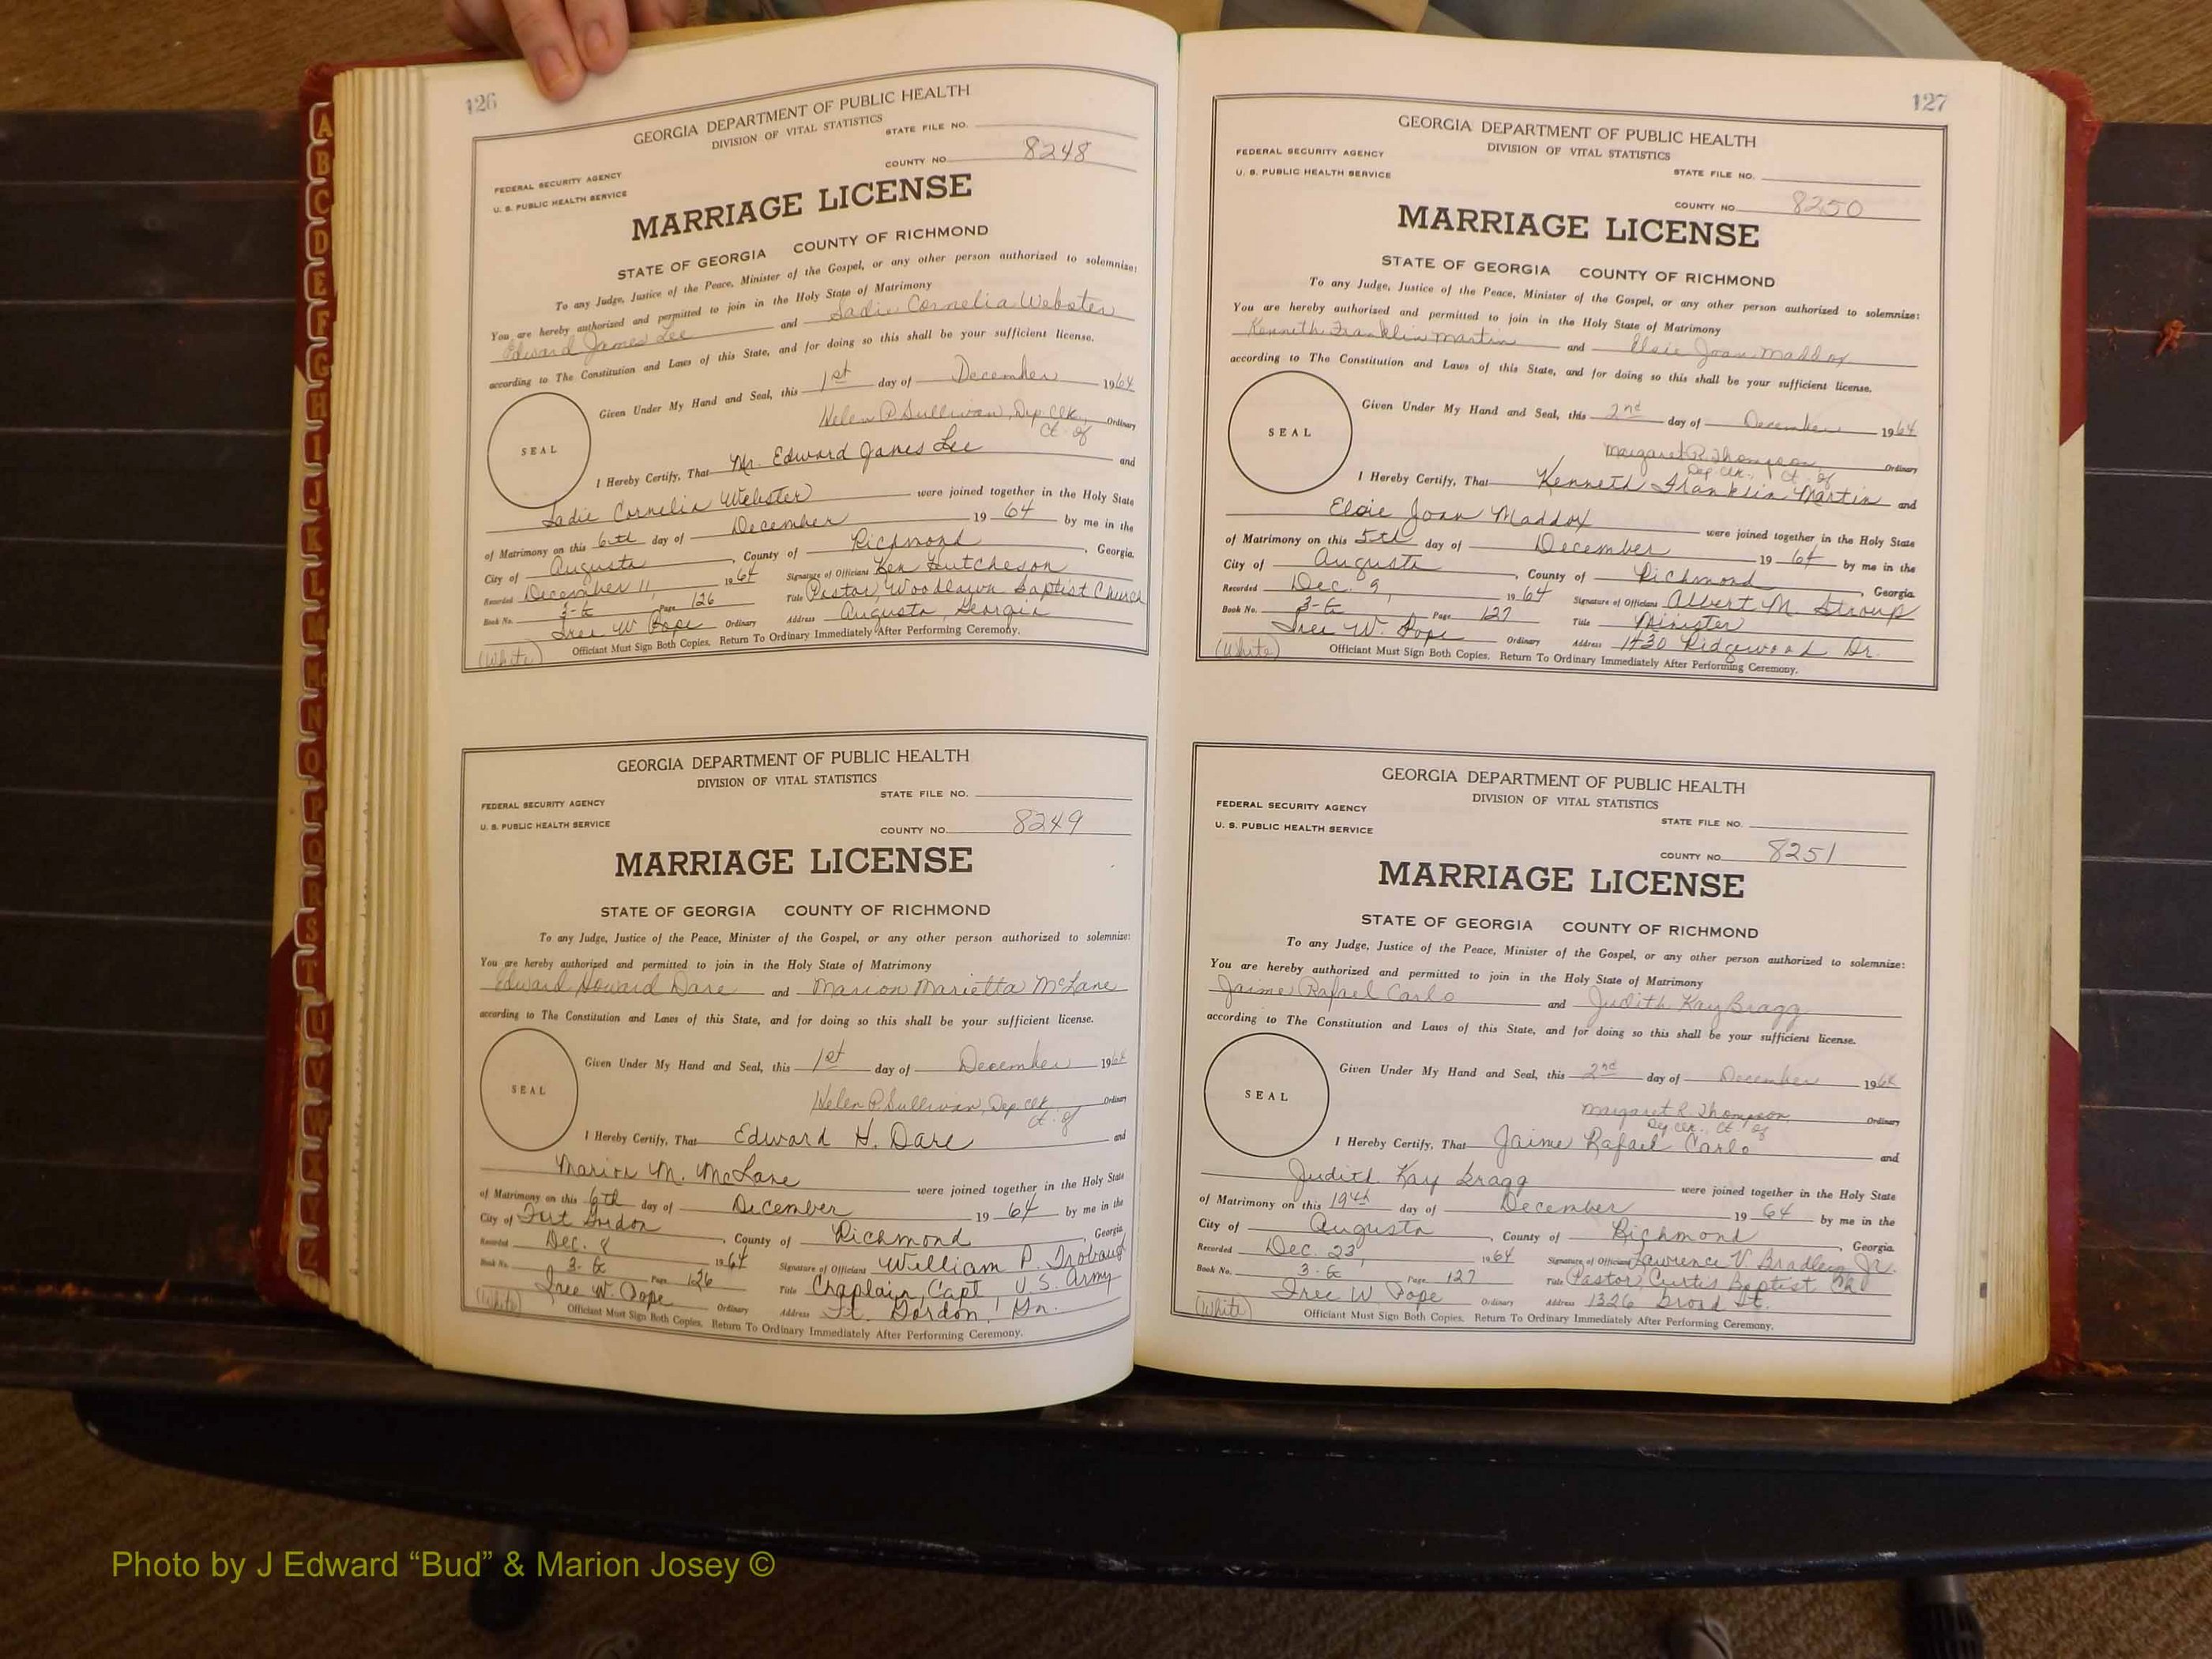 126
GEORGIA DEPARTMENT OF PUBLIC HEALTH
DIVISION OF VITAL STATISTICS
STATE FILE NO.
COUNTY NO. 8248
FEDERAL SECURITY AGENCY
U. S. PUBLIC HEALTH SERVICE
MARRIAGE LICENSE
STATE OF GEORGIA COUNTY OF RICHMOND
To any Judge, Justice of the Peace, Minister of the Gospel, or any other person authorized to solemnize:
You are hereby authorized and permitted to join in the Holy State of Matrimony
Edward James Lee and Sadie Cornelia Webster
according to The Constitution and Laws of this State, and for doing so this shall be your sufficient license.
Given Under My Hand and Seal, this 1st day of December 1964
Helen P Sullivan, Dep. Clk. Ordinary
Ct. of
SEAL
I Hereby Certify, That Mr. Edward James Lee and
Sadie Cornelia Webster were joined together in the Holy State
of Matrimony on this 6th day of December 19 64 by me in the
City of Augusta, County of Richmond, Georgia.
Recorded December 11, 1964 Signature of Officiant Ken Hutcheson
Book No. 3-G Page 126 Title Pastor, Woodlawn Baptist Church
Iree W Pope Ordinary Address Augusta, Georgia
(White) Officiant Must Sign Both Copies. Return To Ordinary Immediately After Performing Ceremony.
GEORGIA DEPARTMENT OF PUBLIC HEALTH
DIVISION OF VITAL STATISTICS
STATE FILE NO.
FEDERAL SECURITY AGENCY
U. S. PUBLIC HEALTH SERVICE
COUNTY NO. 8249
MARRIAGE LICENSE
STATE OF GEORGIA COUNTY OF RICHMOND
To any Judge, Justice of the Peace, Minister of the Gospel, or any other person authorized to solemnize:
You are hereby authorized and permitted to join in the Holy State of Matrimony
Edward Howard Dare and Marion Marietta McLane
according to The Constitution and Laws of this State, and for doing so this shall be your sufficient license.
Given Under My Hand and Seal, this 1st day of December 1964
Helen P Sullivan, Dep. Clk. Ordinary
Ct. of
SEAL
I Hereby Certify, That Edward H. Dare and
Marion M. McLane were joined together in the Holy State
of Matrimony on this 6th day of December 19 64 by me in the
City of Fort Gordon, County of Richmond, Georgia
Recorded Dec. 8 1964 Signature of Officiant William P. Trobaugh
Book No. 3-G Page 126 Title Chaplain, Capt, U.S. Army
Iree W. Pope Ordinary Address Ft. Gordon, Ga.
(White) Officiant Must Sign Both Copies. Return To Ordinary Immediately After Performing Ceremony.
127
GEORGIA DEPARTMENT OF PUBLIC HEALTH
DIVISION OF VITAL STATISTICS
FEDERAL SECURITY AGENCY
U. S. PUBLIC HEALTH SERVICE
STATE FILE NO.
COUNTY NO. 8250
MARRIAGE LICENSE
STATE OF GEORGIA COUNTY OF RICHMOND
To any Judge, Justice of the Peace, Minister of the Gospel, or any other person authorized to solemnize:
You are hereby authorized and permitted to join in the Holy State of Matrimony
Kenneth Franklin Martin and Elsie Joan Maddox
according to The Constitution and Laws of this State, and for doing so this shall be your sufficient license.
Given Under My Hand and Seal, this 2nd day of December 1964
Margaret R Thompson Ordinary
Dep. Clk., Ct. of
SEAL
I Hereby Certify, That Kenneth Franklin Martin and
Elsie Joan Maddox were joined together in the Holy State
of Matrimony on this 5th day of December 19 64 by me in the
City of Augusta, County of Richmond, Georgia
Recorded Dec. 9, 1964 Signature of Officiant Albert M. Stroup
Book No. 3-G Page 127 Title Minister
Iree W. Pope Ordinary Address 1430 Ridgewood Dr.
(White) Officiant Must Sign Both Copies. Return To Ordinary Immediately After Performing Ceremony.
GEORGIA DEPARTMENT OF PUBLIC HEALTH
DIVISION OF VITAL STATISTICS
FEDERAL SECURITY AGENCY
U. S. PUBLIC HEALTH SERVICE
STATE FILE NO.
COUNTY NO. 8251
MARRIAGE LICENSE
STATE OF GEORGIA COUNTY OF RICHMOND
To any Judge, Justice of the Peace, Minister of the Gospel, or any other person authorized to solemnize:
You are hereby authorized and permitted to join in the Holy State of Matrimony
Jaime Rafael Carlo and Judith Kay Bragg
according to The Constitution and Laws of this State, and for doing so this shall be your sufficient license.
Given Under My Hand and Seal, this 2nd day of December 1964
Margaret R. Thompson Ordinary
Dep Clk., Ct. of
SEAL
I Hereby Certify, That Jaime Rafael Carlo and
Judith Kay Bragg were joined together in the Holy State
of Matrimony on this 19th day of December 19 64 by me in the
City of Augusta, County of Richmond, Georgia.
Recorded Dec. 23, 1964 Signature of Officiant Lawrence V Bradley Jr.
Book No. 3-G Page 127 Title Pastor, Curtis Baptist Ch
Iree W Pope Ordinary Address 1326 Broad St.
(White) Officiant Must Sign Both Copies. Return To Ordinary Immediately After Performing Ceremony.
A
B
C
D
E
F
G
H
I
J
K
L
M
Mc
N
O
P
Q
R
S
T
U
V
W
X
Y
Z
Photo by J Edward “Bud” & Marion Josey ©